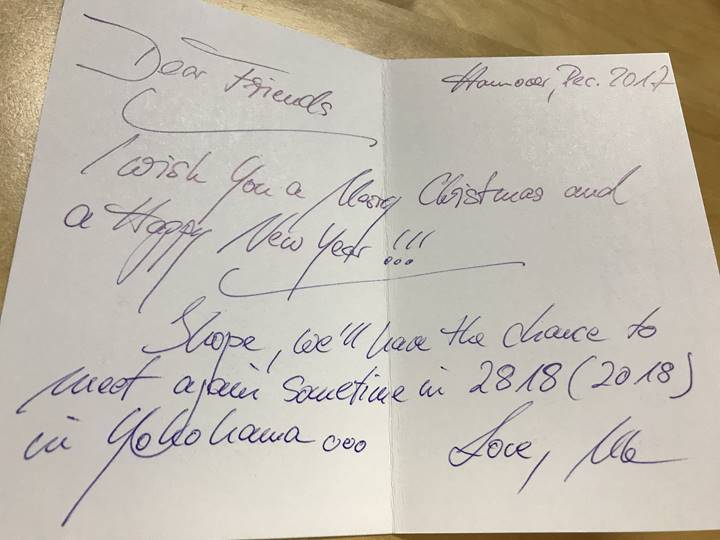 Hannover, Dec. 2017
Dear Friends
I wish You a Merry Christmas and
a Happy New Year!!!
I hope, we'll have the chance to
meet again sometime in 2818 (2018)
in Yokohama ...
Love,